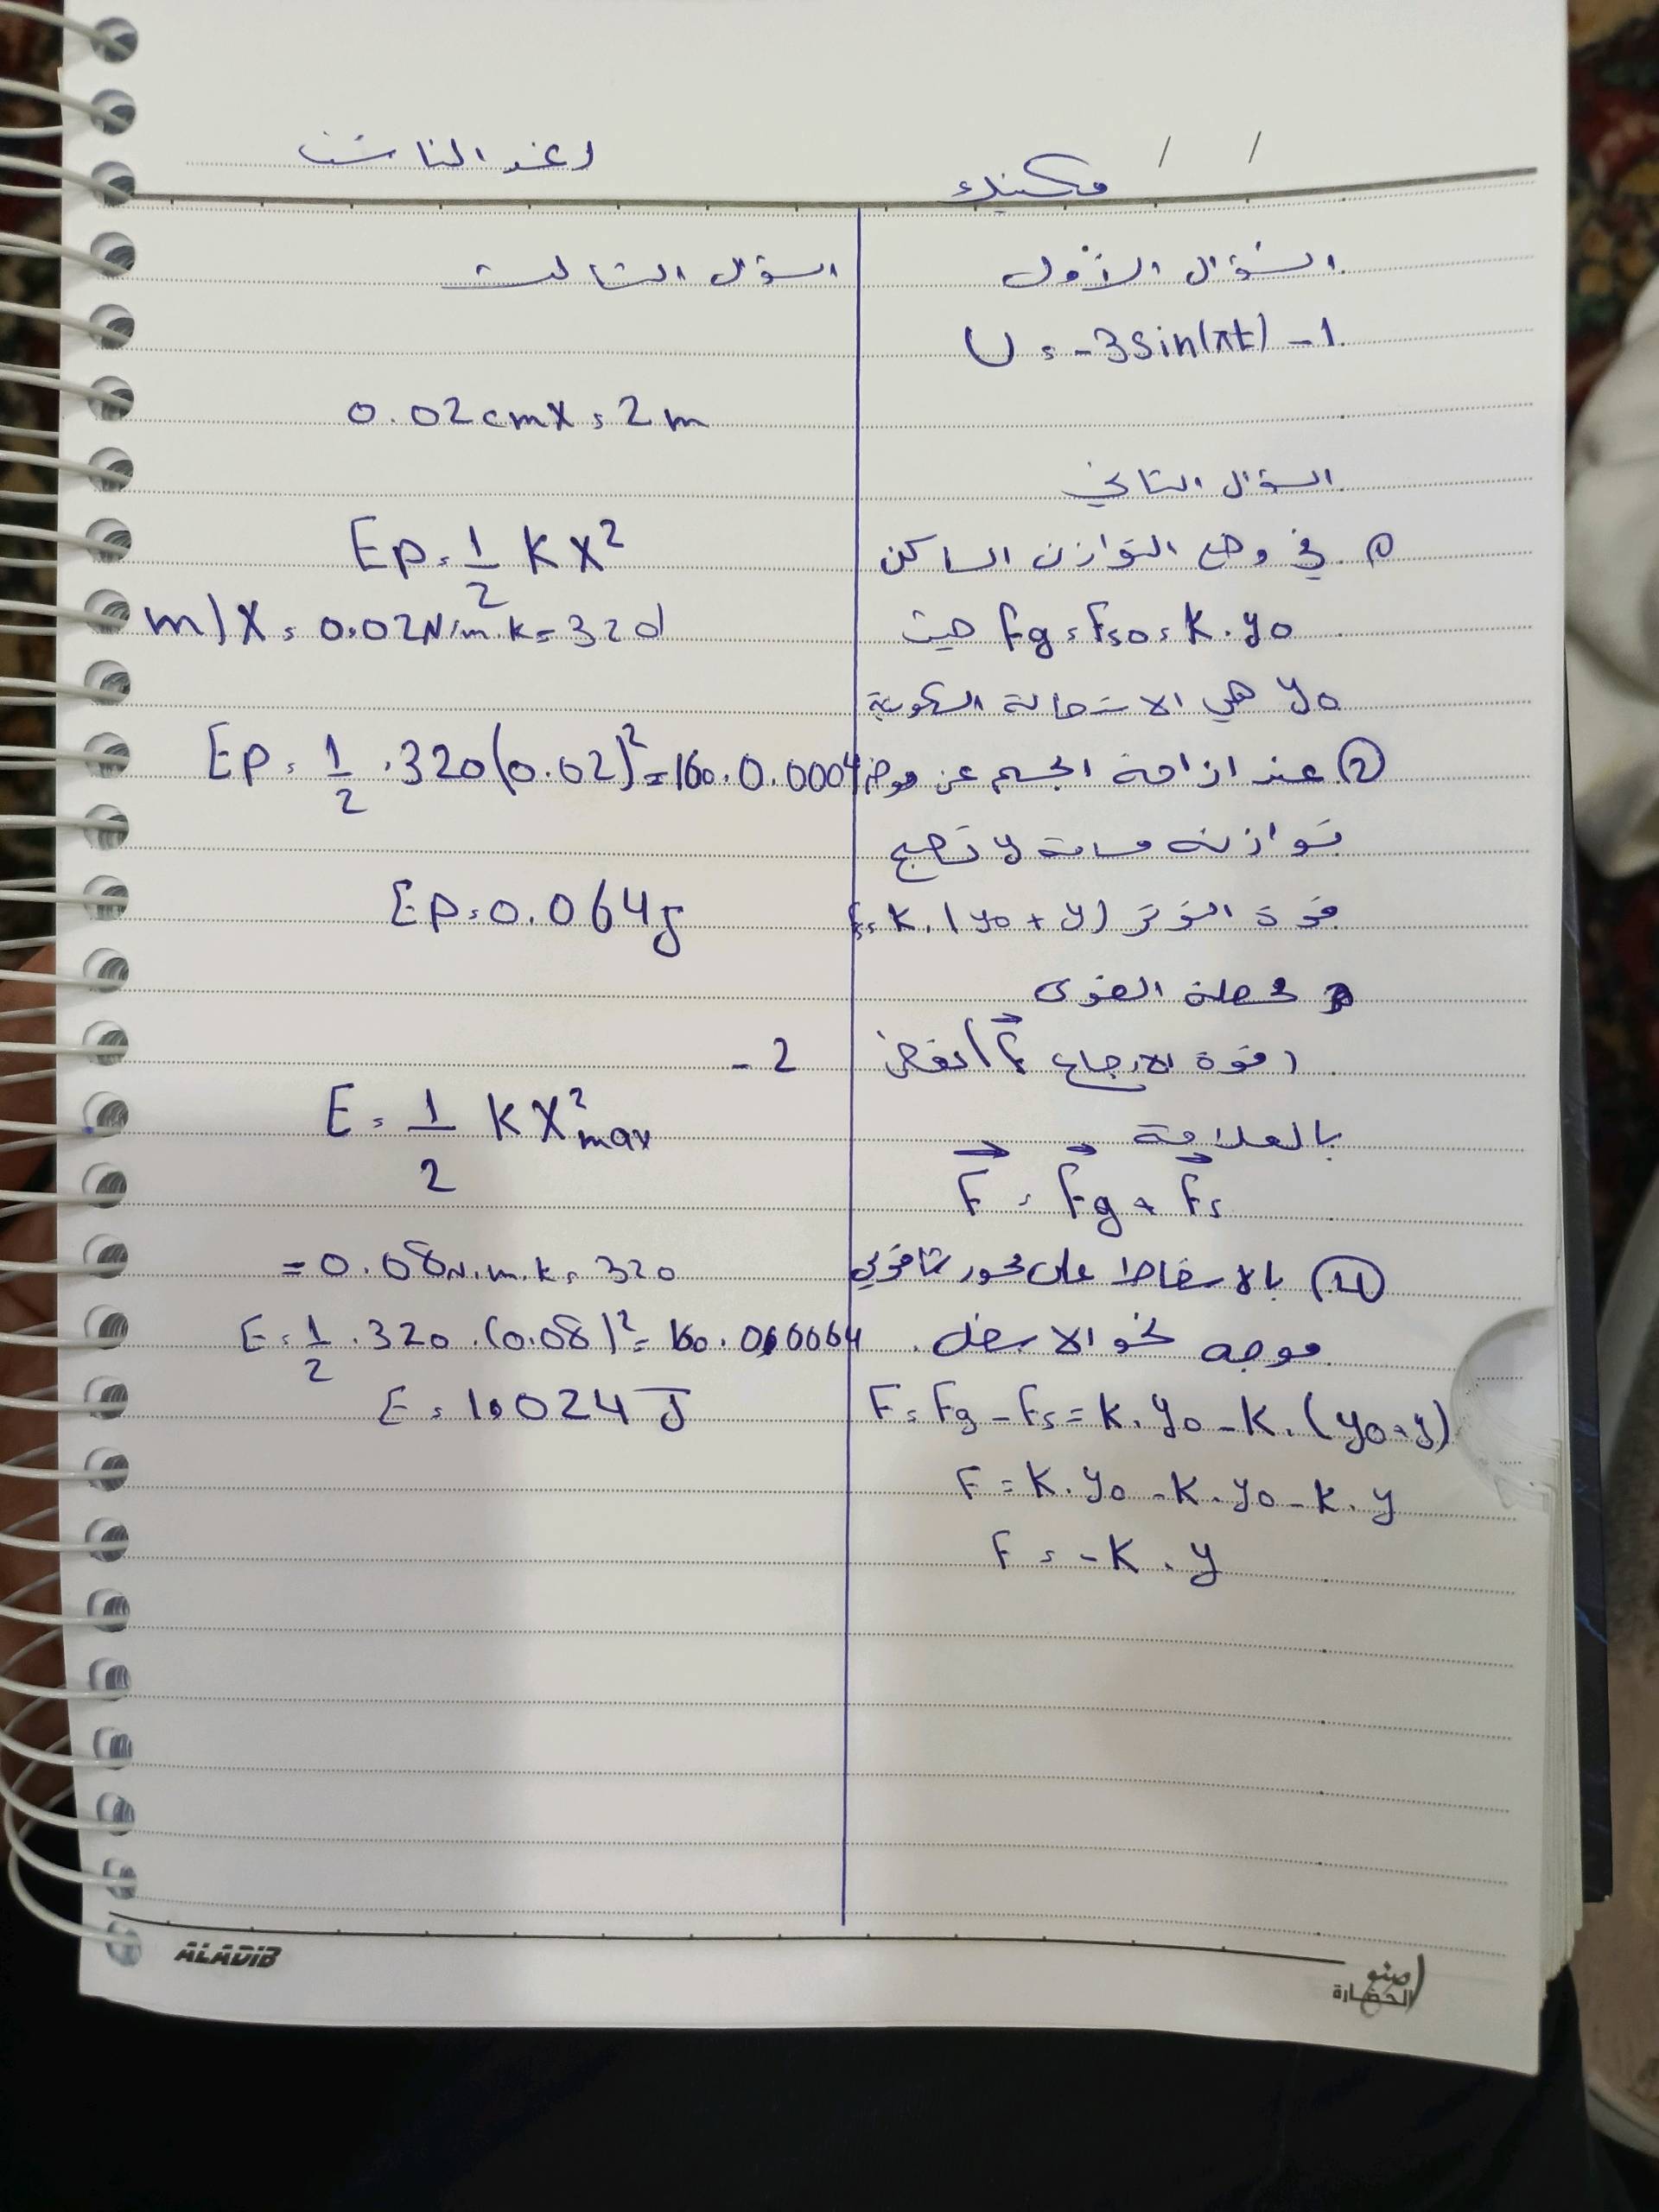 مكنيك
رغد الناشف
السؤال الأول
U = -3 sin(πt) - 1
السؤال الثاني
① في وضع التوازن الساكن
Fg = Fs0 = K . y0 حيث
y0 هي الاستطالة السكونية
② عند ازاحة الجسم عن موضع
توازنه مسافة y تصبح
قوة التوتر F = K . (y0 + y)
محصلة القوى
(قوة الارجاع F) تعطى
بالعلاقة
F = Fg + Fs
بالاسقاط على محور شاقولي
موجه نحو الاسفل
F = Fg - Fs = K . y0 - K . (y0 + y)
F = K . y0 - K . y0 - K . y
F = -K . y
السؤال الثالث
0.02 cm X = 2 m
Ep = 1/2 K X²
m) X = 0.02 N/m . K = 320
Ep = 1/2 . 320 (0.02)² = 160 . 0.0004
Ep = 0.064 J
- 2
E = 1/2 K X²max
= 0.08 N . m . K = 320
E = 1/2 . 320 . (0.08)² = 160 . 0.0064
E = 1.024 J
ALADIB
اصنع
الحضارة